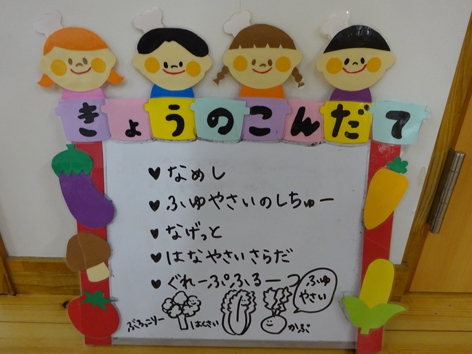 きょうのこんだて
♥ なめし
♥ ふゆやさいのしちゅー
♥ なげっと
♥ はなやさいさらだ
♥ ぐれーぷふるーつ
ふゆ
やさい
ぶろっこりー
はくさい
かぶ